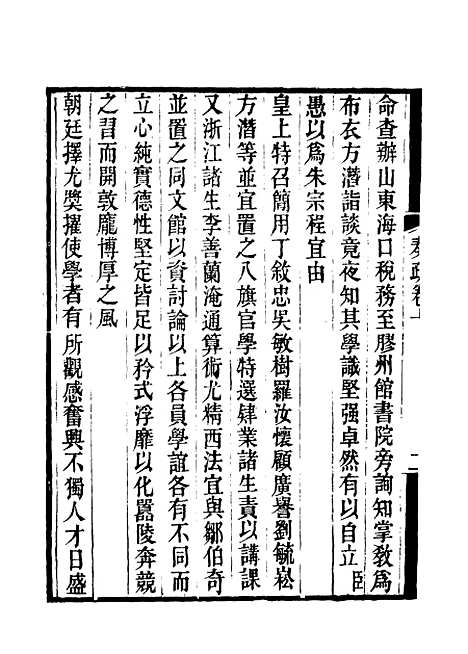 奏疏卷上
二
命查辦山東海口稅務至膠州館書院旁詢知掌敎爲
布衣方潛詣談竟夜知其學識堅强卓然有以自立臣
愚以爲朱宗程宜由
皇上特召簡用丁敘忠吳敏樹羅汝懷顧廣譽劉毓崧
方潛等並宜置之八旗官學特選肄業諸生責以講課
又浙江諸生李善蘭淹通算術尤精西法宜與鄒伯奇
並置之同文館以資討論以上各員學誼各有不同而
立心純實德性堅定皆足以矜式浮靡以化囂陵奔競
之習而開敦龐博厚之風
朝廷擇尤獎擢使學者有所觀感奮興不獨人才日盛